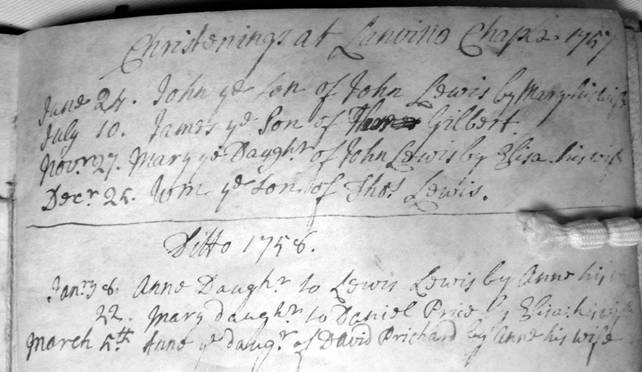 Christenings at Lanvino Chap'l. 1757
June 24. John ye Son of John Lewis by Mary his wife
July 10. James ye Son of Gilbert.
Novr. 27. Mary ye Daughr. of John Lewis by Eliza. his wife
Decr. 25. Wm ye Son of Thos. Lewis.
Ditto 1758.
Janry 8. Anne Daughr. to Lewis Lewis by Anne his
22. Mary daughr. to Daniel Price by Eliza: his wife
March 5th Anne ye daugr. of David Prichard by Anne his wife